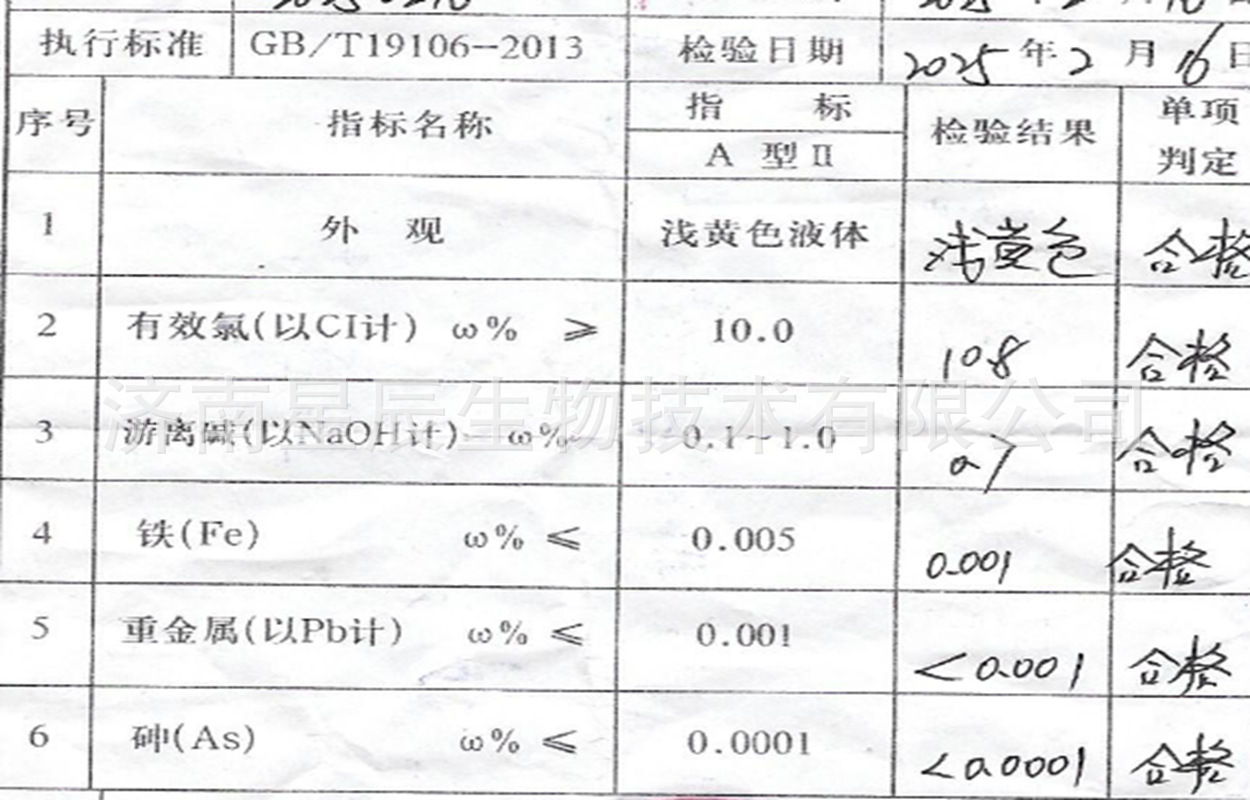 执行标准 GB/T19106-2013 检验日期 2025年2月16日
序号 指标名称 指标 检验结果 单项判定
A 型Ⅱ
1 外观 浅黄色液体 浅黄色 合格
2 有效氯(以CI计) ω% ≥ 10.0 10.8 合格
济南星辰生物技术有限公司
3 游离碱(以NaOH计) ω% 0.1~1.0 0.7 合格
4 铁(Fe) ω% ≤ 0.005 0.001 合格
5 重金属(以Pb计) ω% ≤ 0.001 <0.001 合格
6 砷(As) ω% ≤ 0.0001 <0.0001 合格